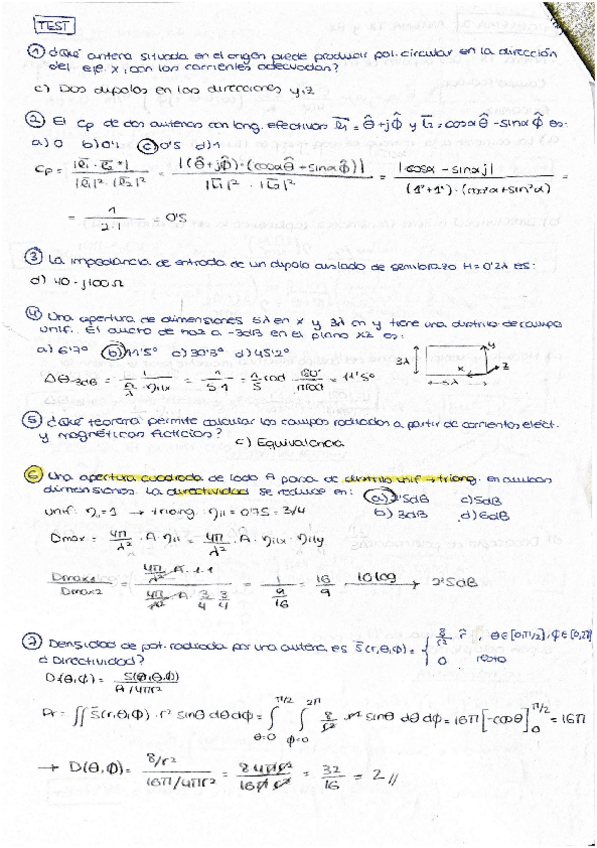 TEST
① ¿Qué antena situada en el origen puede producir pol. circular en la dirección
del eje x, con las corrientes adecuadas?
c) Dos dipolos en las direcciones y,z
② El Cp de dos antenas con long. efectivas l₁ = θ̂+jϕ̂ y l₂ = cosα θ̂ - sinα ϕ̂ es:
a) 0 b) 0'1 c) 0'5 d) 1
Cp = |l₁ · l₂*| / |l₁|² · |l₂|² = |(θ̂+jϕ̂)·(cosα θ̂ + sinα ϕ̂)| / |l₁|² · |l₂|² = |cosα - sinα j| / (1²+1²)·(cos²α+sin²α) =
= 1 / 2·1 = 0'5
③ La impedancia de entrada de un dipolo aislado de semibrazo H=0'2λ es:
d) 40-j100Ω
④ Una apertura de dimensiones 5λ en x y 3λ en y tiene una distrib de campo
unif. El ancho de haz a -3dB en el plano XZ es:
a) 6'7° b) 11'5° c) 30'3° d) 45'2°
Δθ-3dB = 1 / a/λ · ηilx = 1 / 5·1 = 1/5 rad · 180° / π rad = 11'5°
3λ
y
x
z
5λ
⑤ ¿Qué teorema permite calcular los campos radiados a partir de corrientes eléct.
y magnéticas ficticias?
c) Equivalencia
⑥ Una apertura cuadrada de lado A pasa de distrib unif → triang. en ambas
dimensiones. La directividad se reduce en: a) 2'5dB c) 5dB
b) 3dB d) 6dB
Unif: η=1 → triang: ηil = 0'75 = 3/4
Dmax = 4π/λ² · A · ηil = 4π/λ² · A · ηilx · ηily
Dmax1 / Dmax2 = 4π/λ² · A · 1·1 / 4π/λ² · A · 3/4 · 3/4 = 1 / 9/16 = 16/9 10log → 2'5dB
⑦ Densidad de pot. radiada por una antena es S(r,θ,ϕ) = { 8/r² r̂, θ∈[0,π/2], ϕ∈[0,2π]
¿Directividad? 0 resto
D(θ,ϕ) = S(θ,ϕ) / Pr/4πr²
Pr = ∬ S(r,θ,ϕ) · r² sinθ dθdϕ = ∫ θ=0 π/2 ∫ ϕ=0 2π 8/r² r² sinθ dθ dϕ = 16π [-cosθ] 0 π/2 = 16π
→ D(θ,ϕ) = 8/r² / 16π/4πr² = 8·4πr² / 16πr² = 32/16 = 2 //